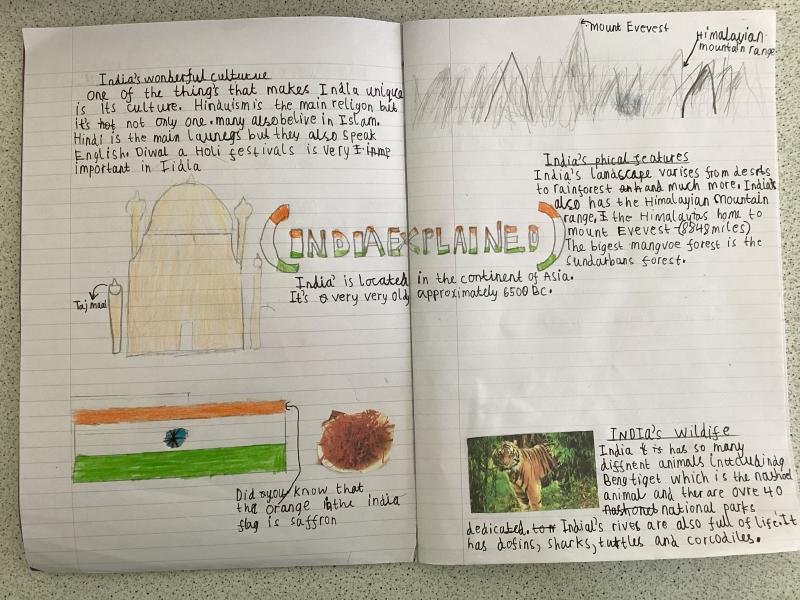 India's wonberful culturue
One of the thing's that makes India unique
is its culture. Hinduism is the main religon but
it's not not only one. many also belive in Islam.
Hindi is the main launegs but they also speak
English. Diwal a Holi festivals is very
important in Iidla
Taj maal
INDIA EXPLAINED
India' is located in the continent of Asia.
It's a very very old approximately 6500 BC.
Did you know that
the orange in the india
flag is saffron
mount Evevest
Himalayian
mountain range
India's phical features
India's landscape varises from desrts
to rainforest and much more. India's
also has the Himalayian Mountain
range. the Himalaytas home to
mount Evevest (8848miles)
The bigest mangvoe forest is the
sundarbans forest.
INDIA's wildife
India has so many
diffsrent animals
Bengtiget which is the
animal and ther are ovre 40
nashonet national parks
dedicated. India's rives are also full of life. It
has dofins, sharks, turtles and corcodiles.